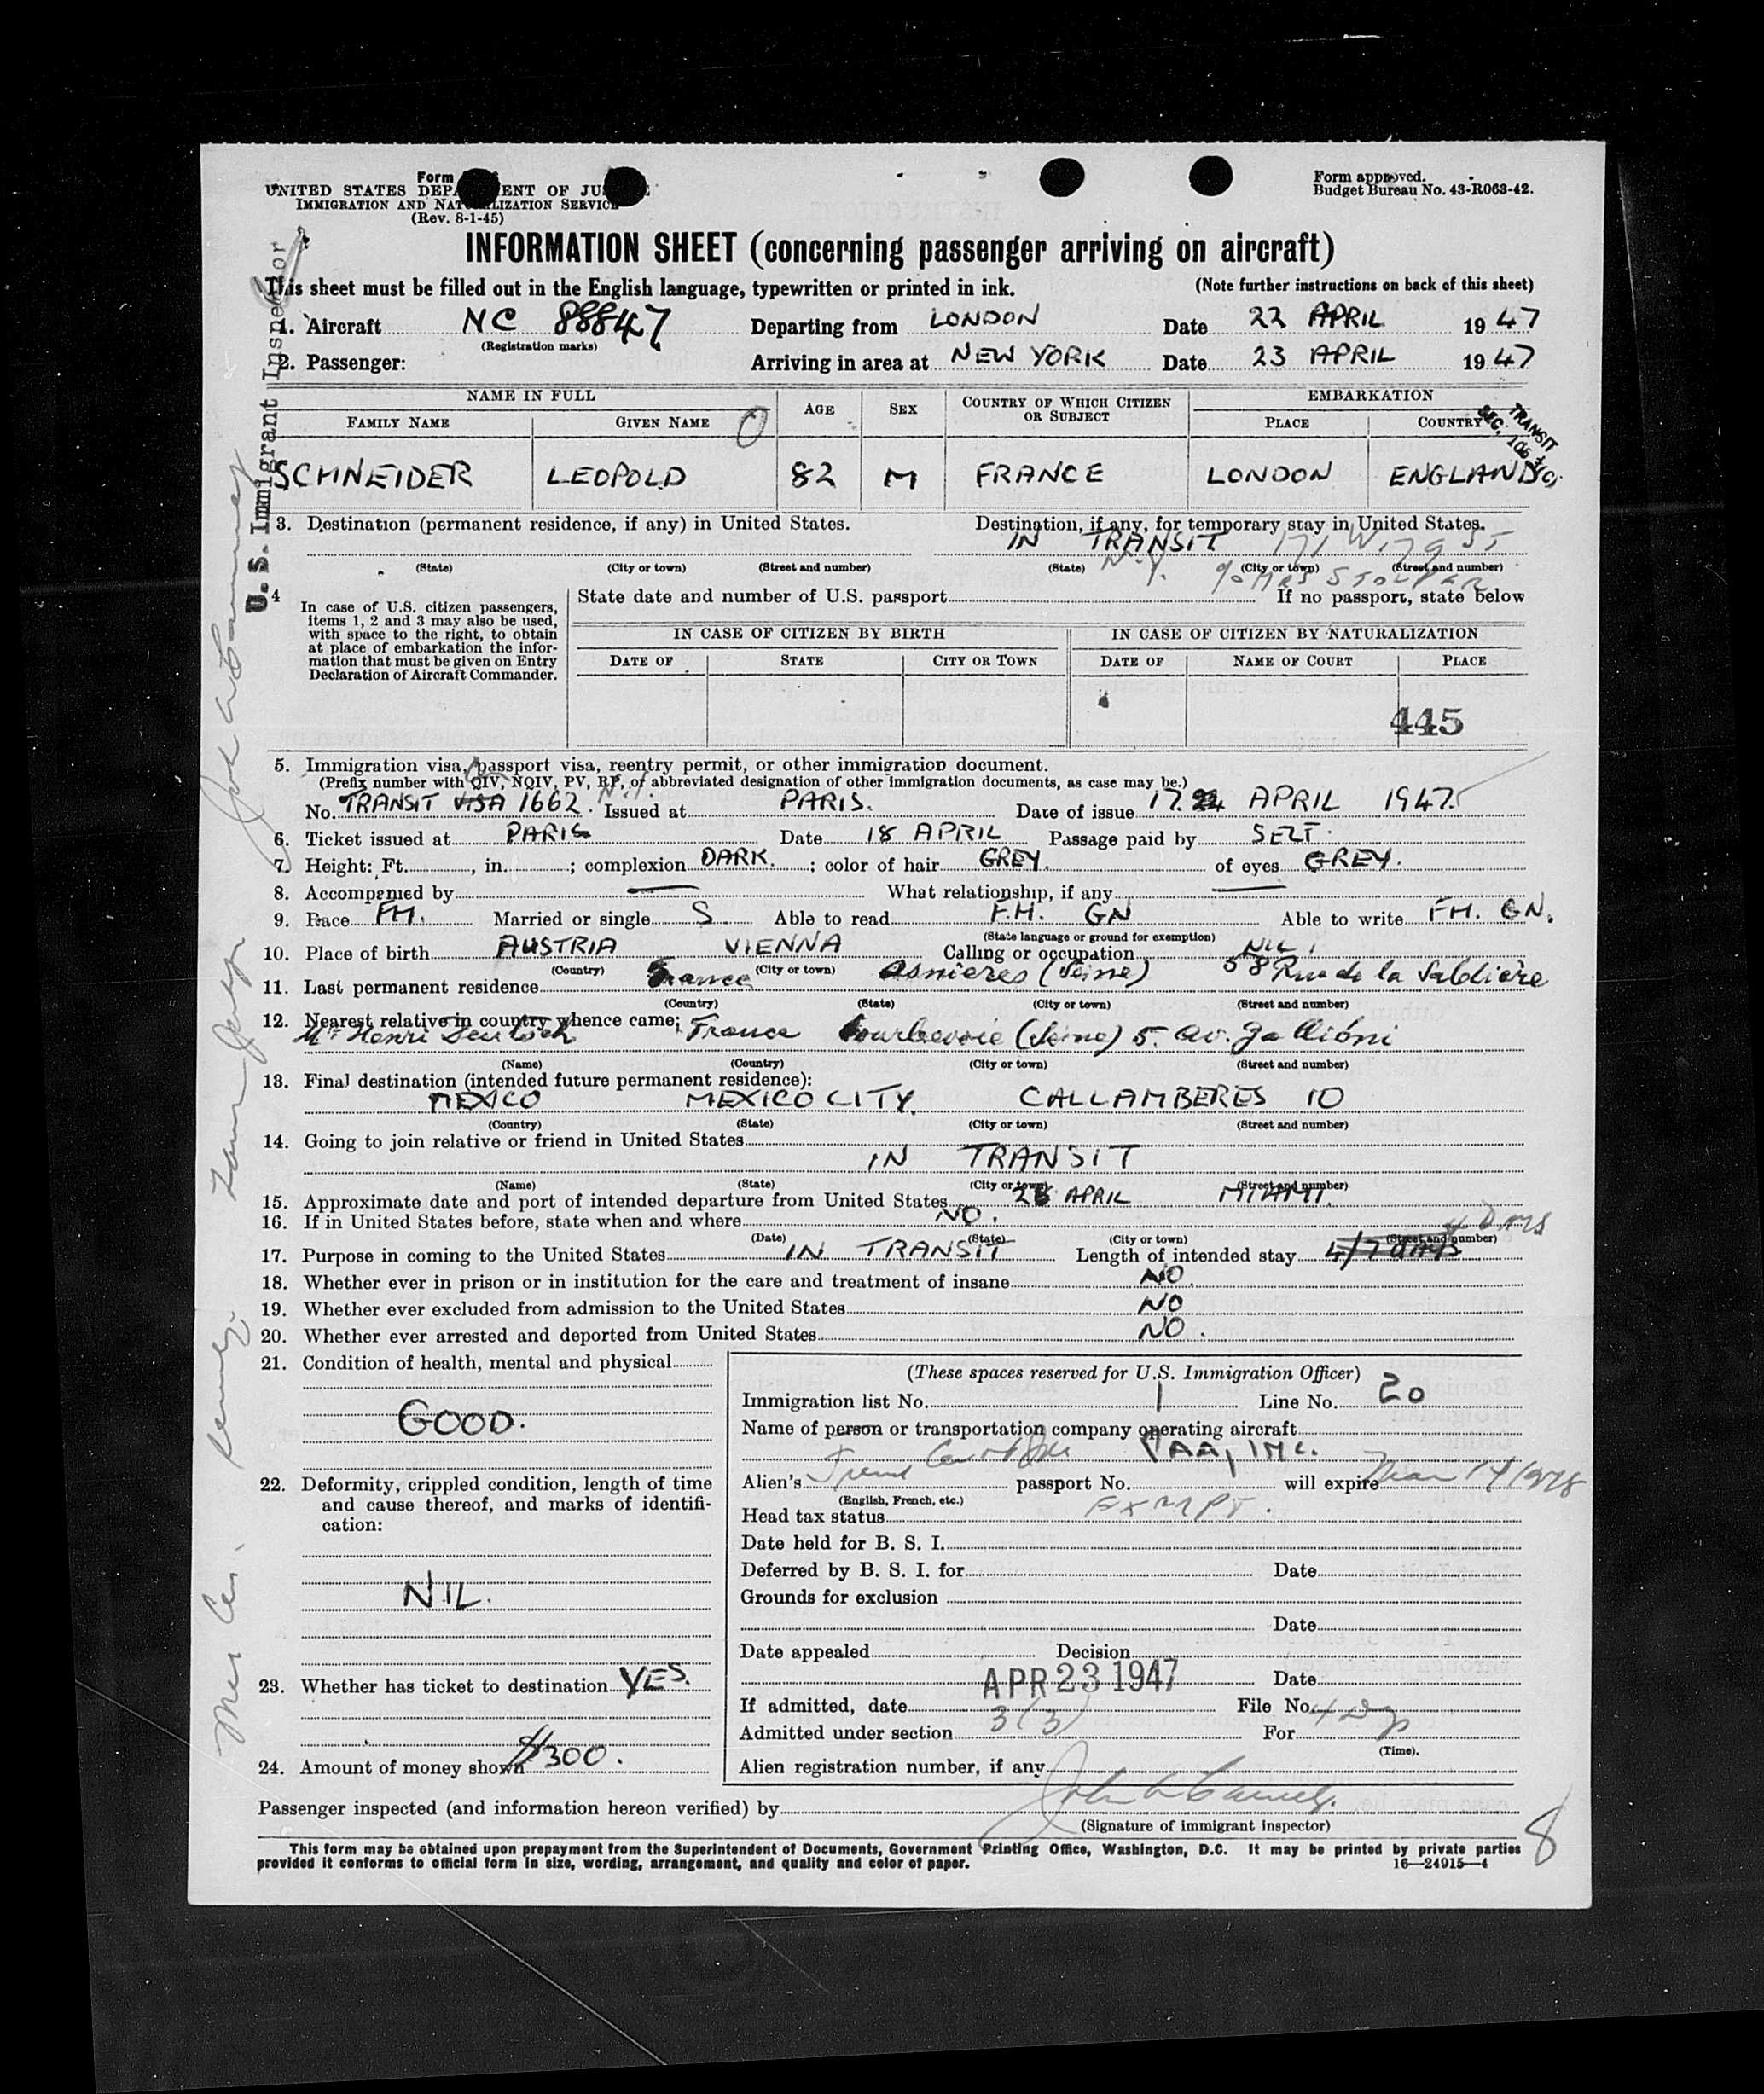 Form
UNITED STATES DEPA ENT OF JU E
IMMIGRATION AND NAT LIZATION SERVICE
(Rev. 8-1-45)
Form approved.
Budget Bureau No. 43-R063-42.
INFORMATION SHEET (concerning passenger arriving on aircraft)
This sheet must be filled out in the English language, typewritten or printed in ink. (Note further instructions on back of this sheet)
1. Aircraft NC 88847 Departing from LONDON Date 22 APRIL 1947
(Registration marks)
2. Passenger: Arriving in area at NEW YORK Date 23 APRIL 1947
NAME IN FULL AGE SEX COUNTRY OF WHICH CITIZEN OR SUBJECT EMBARKATION
FAMILY NAME GIVEN NAME PLACE COUNTRY
TRANSIT
SCHNEIDER LEOPOLD 82 M FRANCE LONDON ENGLAND
3. Destination (permanent residence, if any) in United States. Destination, if any, for temporary stay in United States.
IN TRANSIT 171 W 179 ST
(State) (City or town) (Street and number) (State) N.Y. (City or town) (Street and number)
c/o MRS STOLPER
4 In case of U.S. citizen passengers, items 1, 2 and 3 may also be used, with space to the right, to obtain at place of embarkation the information that must be given on Entry Declaration of Aircraft Commander.
State date and number of U.S. passport If no passport, state below
IN CASE OF CITIZEN BY BIRTH IN CASE OF CITIZEN BY NATURALIZATION
DATE OF STATE CITY OR TOWN DATE OF NAME OF COURT PLACE
445
5. Immigration visa, passport visa, reentry permit, or other immigration document.
(Prefix number with QIV, NQIV, PV, RP, or abbreviated designation of other immigration documents, as case may be.)
No. TRANSIT VISA 1662 Issued at PARIS. Date of issue 17. APRIL 1947
6. Ticket issued at PARIS Date 18 APRIL Passage paid by SELF.
7. Height: Ft. , in. ; complexion DARK. ; color of hair GREY. of eyes GREY.
8. Accompanied by — What relationship, if any —
9. Race FH. Married or single S Able to read F.H. GN Able to write FH. GN.
(State language or ground for exemption)
10. Place of birth AUSTRIA VIENNA Calling or occupation NIL.
(Country) (City or town)
11. Last permanent residence France Asnieres (Seine) 58 Rue de la Sablière
(Country) (State) (City or town) (Street and number)
12. Nearest relative in country whence came;
Mr Henri France Courbevoie (Seine) 5. av. Galliéni
(Name) (Country) (City or town) (Street and number)
13. Final destination (intended future permanent residence):
MEXICO MEXICO CITY. CALLAMBERES 10
(Country) (State) (City or town) (Street and number)
14. Going to join relative or friend in United States
IN TRANSIT
(Name) (State) (City or town) (Street and number)
15. Approximate date and port of intended departure from United States APRIL MIAMI.
16. If in United States before, state when and where NO.
(Date) (State) (City or town) (Street and number)
4 DAYS
17. Purpose in coming to the United States IN TRANSIT Length of intended stay 4/7 days
18. Whether ever in prison or in institution for the care and treatment of insane NO.
19. Whether ever excluded from admission to the United States NO
20. Whether ever arrested and deported from United States NO.
21. Condition of health, mental and physical
GOOD.
22. Deformity, crippled condition, length of time and cause thereof, and marks of identification:
NIL.
23. Whether has ticket to destination YES.
24. Amount of money shown $300.
(These spaces reserved for U.S. Immigration Officer)
Immigration list No. 1 Line No. 20
Name of person or transportation company operating aircraft
PAA, INC.
Alien's passport No. will expire Mar 17 1948
(English, French, etc.)
Head tax status EXMPT.
Date held for B. S. I.
Deferred by B. S. I. for Date
Grounds for exclusion
Date
Date appealed Decision
Date
APR 23 1947
If admitted, date File No.
Admitted under section 3(3) For 4 Dys
(Time).
Alien registration number, if any
Passenger inspected (and information hereon verified) by
(Signature of immigrant inspector)
This form may be obtained upon prepayment from the Superintendent of Documents, Government Printing Office, Washington, D.C. It may be printed by private parties
provided it conforms to official form in size, wording, arrangement, and quality and color of paper. 16—24915-4
8
U.S. Immigrant Inspector